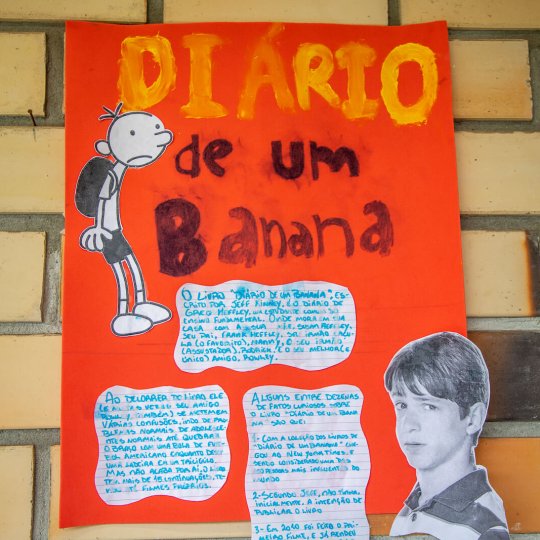 DIÁRIO
de um
Banana
O LIVRO "DIÁRIO DE UM BANANA", ES-
CRITO POR JEFF KINNEY, É O DIÁRIO DE
GREG HEFFLEY, UM ESTUDANTE COMUM DO
ENSINO FUNDAMENTAL. ONDE MORA EM SUA
CASA COM A SUA MÃE, SUSAN HEFFLEY,
SEU PAI, FRANK HEFFLEY, SEU IRMÃO CAÇU-
LA (O FAVORITO), MANNY, O SEU IRMÃO
(ASSUSTADOR), RODRICK E O SEU MELHOR (E
ÚNICO) AMIGO, ROWLEY.
AO DECORRER DO LIVRO ELE
(E ALGUMAS VEZES SEU AMIGO
ROWLEY TAMBÉM) SE METEM EM
VÁRIAS CONFUSÕES, INDO DE PRO-
BLEMAS NORMAIS DE ADOLESCEN-
TES NORMAIS ATÉ QUEBRAR
O BRAÇO COM UMA BOLA DE FUTE-
BOL AMERICANO ENQUANTO DESCE
UMA LADEIRA EM UM TRICICULO.
MAS NÃO ACABA POR AÍ, O LIVRO
TEM MAIS DE 15 CONTINUAÇÕES, TE-
VE ATÉ FILMES PRÓPRIOS.
ALGUNS ENTRE DEZENAS
DE FATOS CURIOSOS SOBRE
O LIVRO "DIÁRIO DE UM BANA
NA" SÃO QUE:
1- COM A COLEÇÃO DOS LIVROS DE
"DIÁRIO DE UM BANANA" CHE-
GOU AO NEW YORK TIMES, E
SENDO CONSIDERADO UMA DAS
100 PESSOAS MAIS INFLUENTES DO
MUNDO
2- SEGUNDO JEFF, NÃO TINHA,
INICIALMENTE, A INTENÇÃO DE
PUBLICAR O LIVRO
3- EM 2010 FOI FEITO O PRI-
MEIRO FILME, E JÁ RENDEU